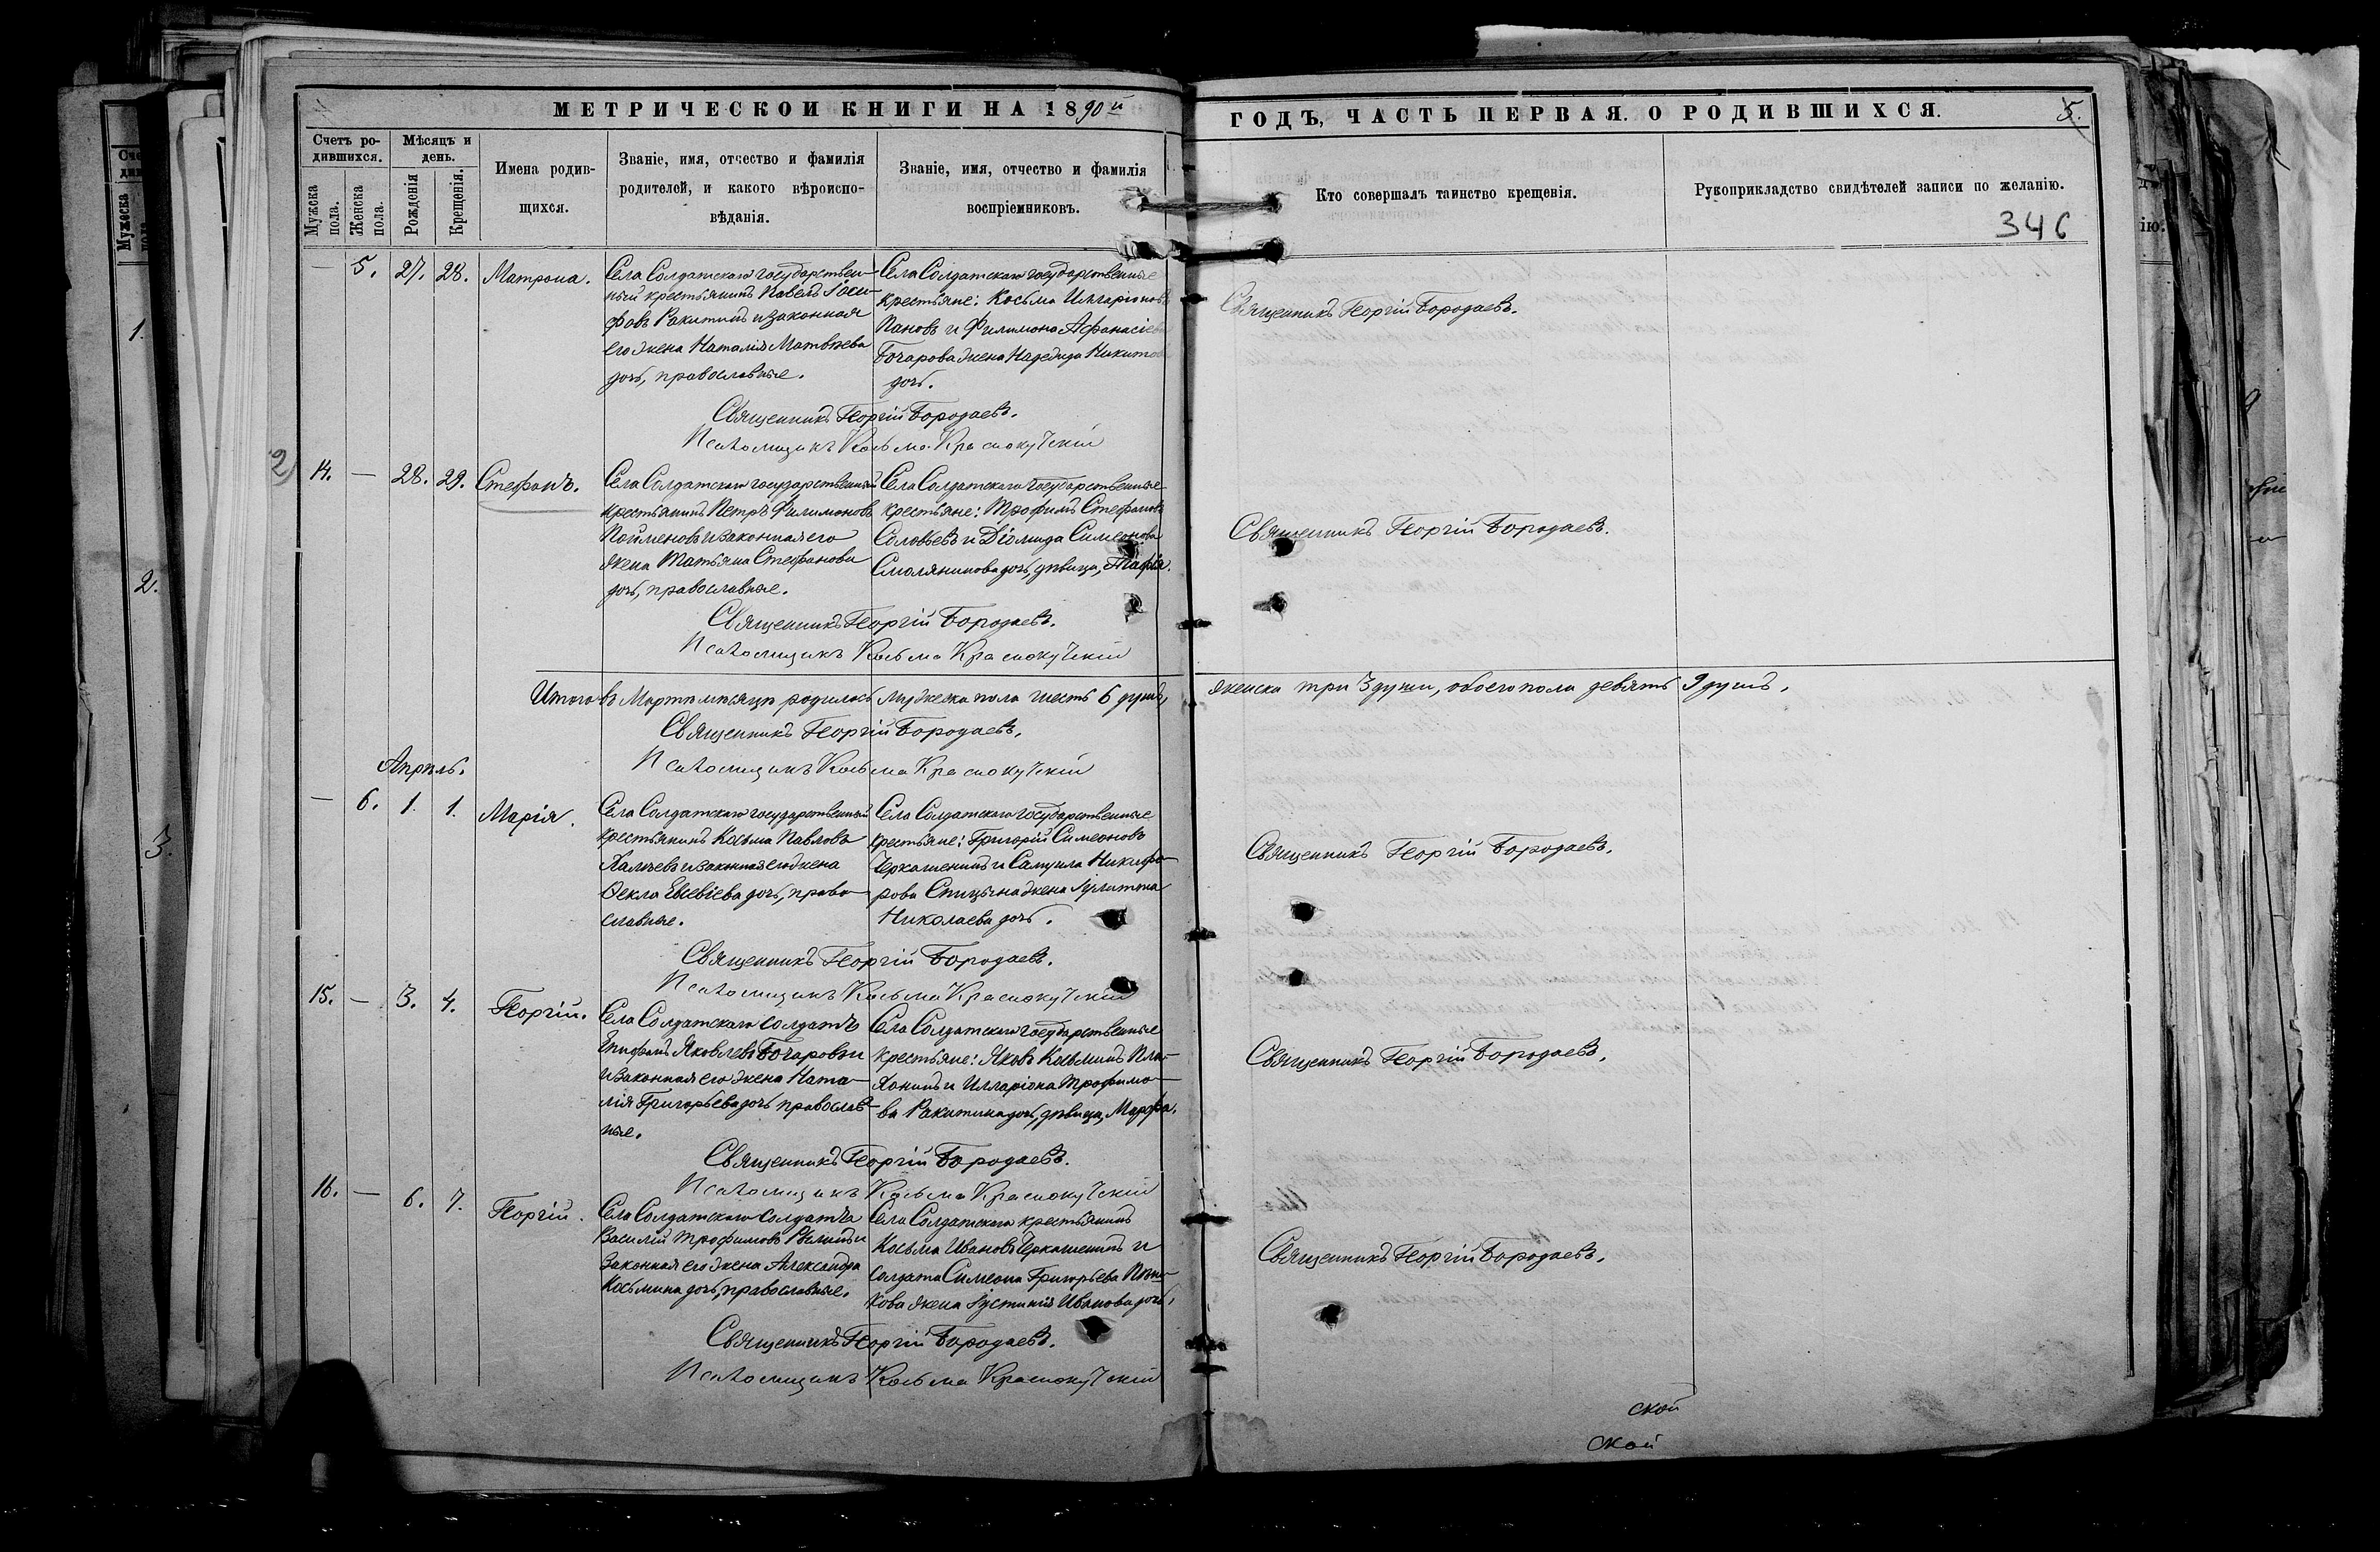 МЕТРИЧЕСКОЙ КНИГИ НА 1890й
ГОДЪ, ЧАСТЬ ПЕРВАЯ. О РОДИВШИХСЯ.
5.
Счетъ ро-
дившихся.
Мужска пола.
Женска пола.
Мѣсяцъ и
день.
Рожденія
Крещенія.
Имена родив-
щихся.
Званіе, имя, отчество и фамилія
родителей, и какого вѣроиспо-
вѣданія.
Званіе, имя, отчество и фамилія
воспріемниковъ.
Кто совершалъ таинство крещенія.
Рукоприкладство свидѣтелей записи по желанію.
346
— 5. 27. 28. Матрона.
Села Солдатскаго государствен-
ный крестьянинъ Павелъ Іоси-
фовъ Ракитинъ и законная
его жена Наталія Матвѣева
дочь, православные.
Села Солдатскаго государственные
крестьяне: Косьма Илларіоновъ
Пановъ и Филимона Афанасіева
Бочарова жена Надежда Никитова
дочь.
Священникъ Георгій Бородаевъ.
Священникъ Георгій Бородаевъ.
Псаломщикъ Косьма Краснокутскій
2)
14. — 28. 29. Стефанъ.
Села Солдатскаго государственный
крестьянинъ Петръ Филимоновъ
Пойменовъ и законная его
жена Татьяна Стефанова
дочь, православные.
Села Солдатскаго государственные
крестьяне: Трофимъ Стефановъ
Соловьевъ и Діомида Симеонова
Смолянинова дочь, дѣвица,
Священникъ Георгій Бородаевъ.
Священникъ Георгій Бородаевъ.
Псаломщикъ Косьма Краснокутскій
Итого въ Мартѣ мѣсяцѣ родилось мужеска пола шесть 6 душъ,
женска три 3 души, обоего пола девять 9 душъ.
Священникъ Георгій Бородаевъ.
Псаломщикъ Косьма Краснокутскій
Апрѣль.
— 6. 1. 1. Марія.
Села Солдатскаго государственный
крестьянинъ Косьма Павловъ
и законная его жена
Ѳекла Евсевіева дочь, право-
славные.
Села Солдатскаго государственные
крестьяне: Григорій Симеоновъ
Черкашенинъ и Самуила Никифо-
рова Спицына жена Іулитта
Николаева дочь.
Священникъ Георгій Бородаевъ.
Священникъ Георгій Бородаевъ.
Псаломщикъ Косьма Краснокутскій
15. — 3. 4. Георгій.
Села Солдатскаго солдатъ
Епифанъ Яковлевъ Бочаровъ
и законная его жена Ната-
лія Григорьева дочь православ-
ные.
Села Солдатскаго государственные
крестьяне: Яковъ Косьминъ Пла-
хонинъ и Илларіона Трофимо-
ва Ракитина дочь, дѣвица, Марфа.
Священникъ Георгій Бородаевъ.
Священникъ Георгій Бородаевъ.
Псаломщикъ Косьма Краснокутскій
16. — 6. 7. Георгій.
Села Солдатскаго солдатъ
Василій Трофимовъ и
законная его жена Александра
Косьмина дочь, православные.
Села Солдатскаго крестьянинъ
Косьма Ивановъ Черкашенинъ и
солдата Симеона Григорьева
жена Іустинія Иванова дочь.
Священникъ Георгій Бородаевъ.
Священникъ Георгій Бородаевъ.
Псаломщикъ Косьма Краснокутскій
ской
ской
1.
2.
3